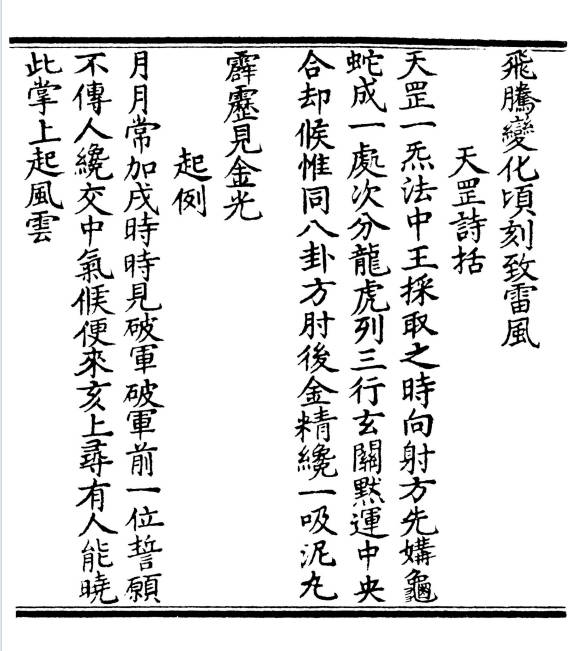 飛騰變化頃刻致雷風
天罡詩括
天罡一炁法中王採取之時向射方先媾龜
蛇成一處次分龍虎列三行玄關默運中央
合却候惟同八卦方肘後金精纔一吸泥丸
霹靂見金光
起例
月月常加戌時時見破軍破軍前一位誓願
不傳人纔交中氣候便來亥上尋有人能曉
此掌上起風雲